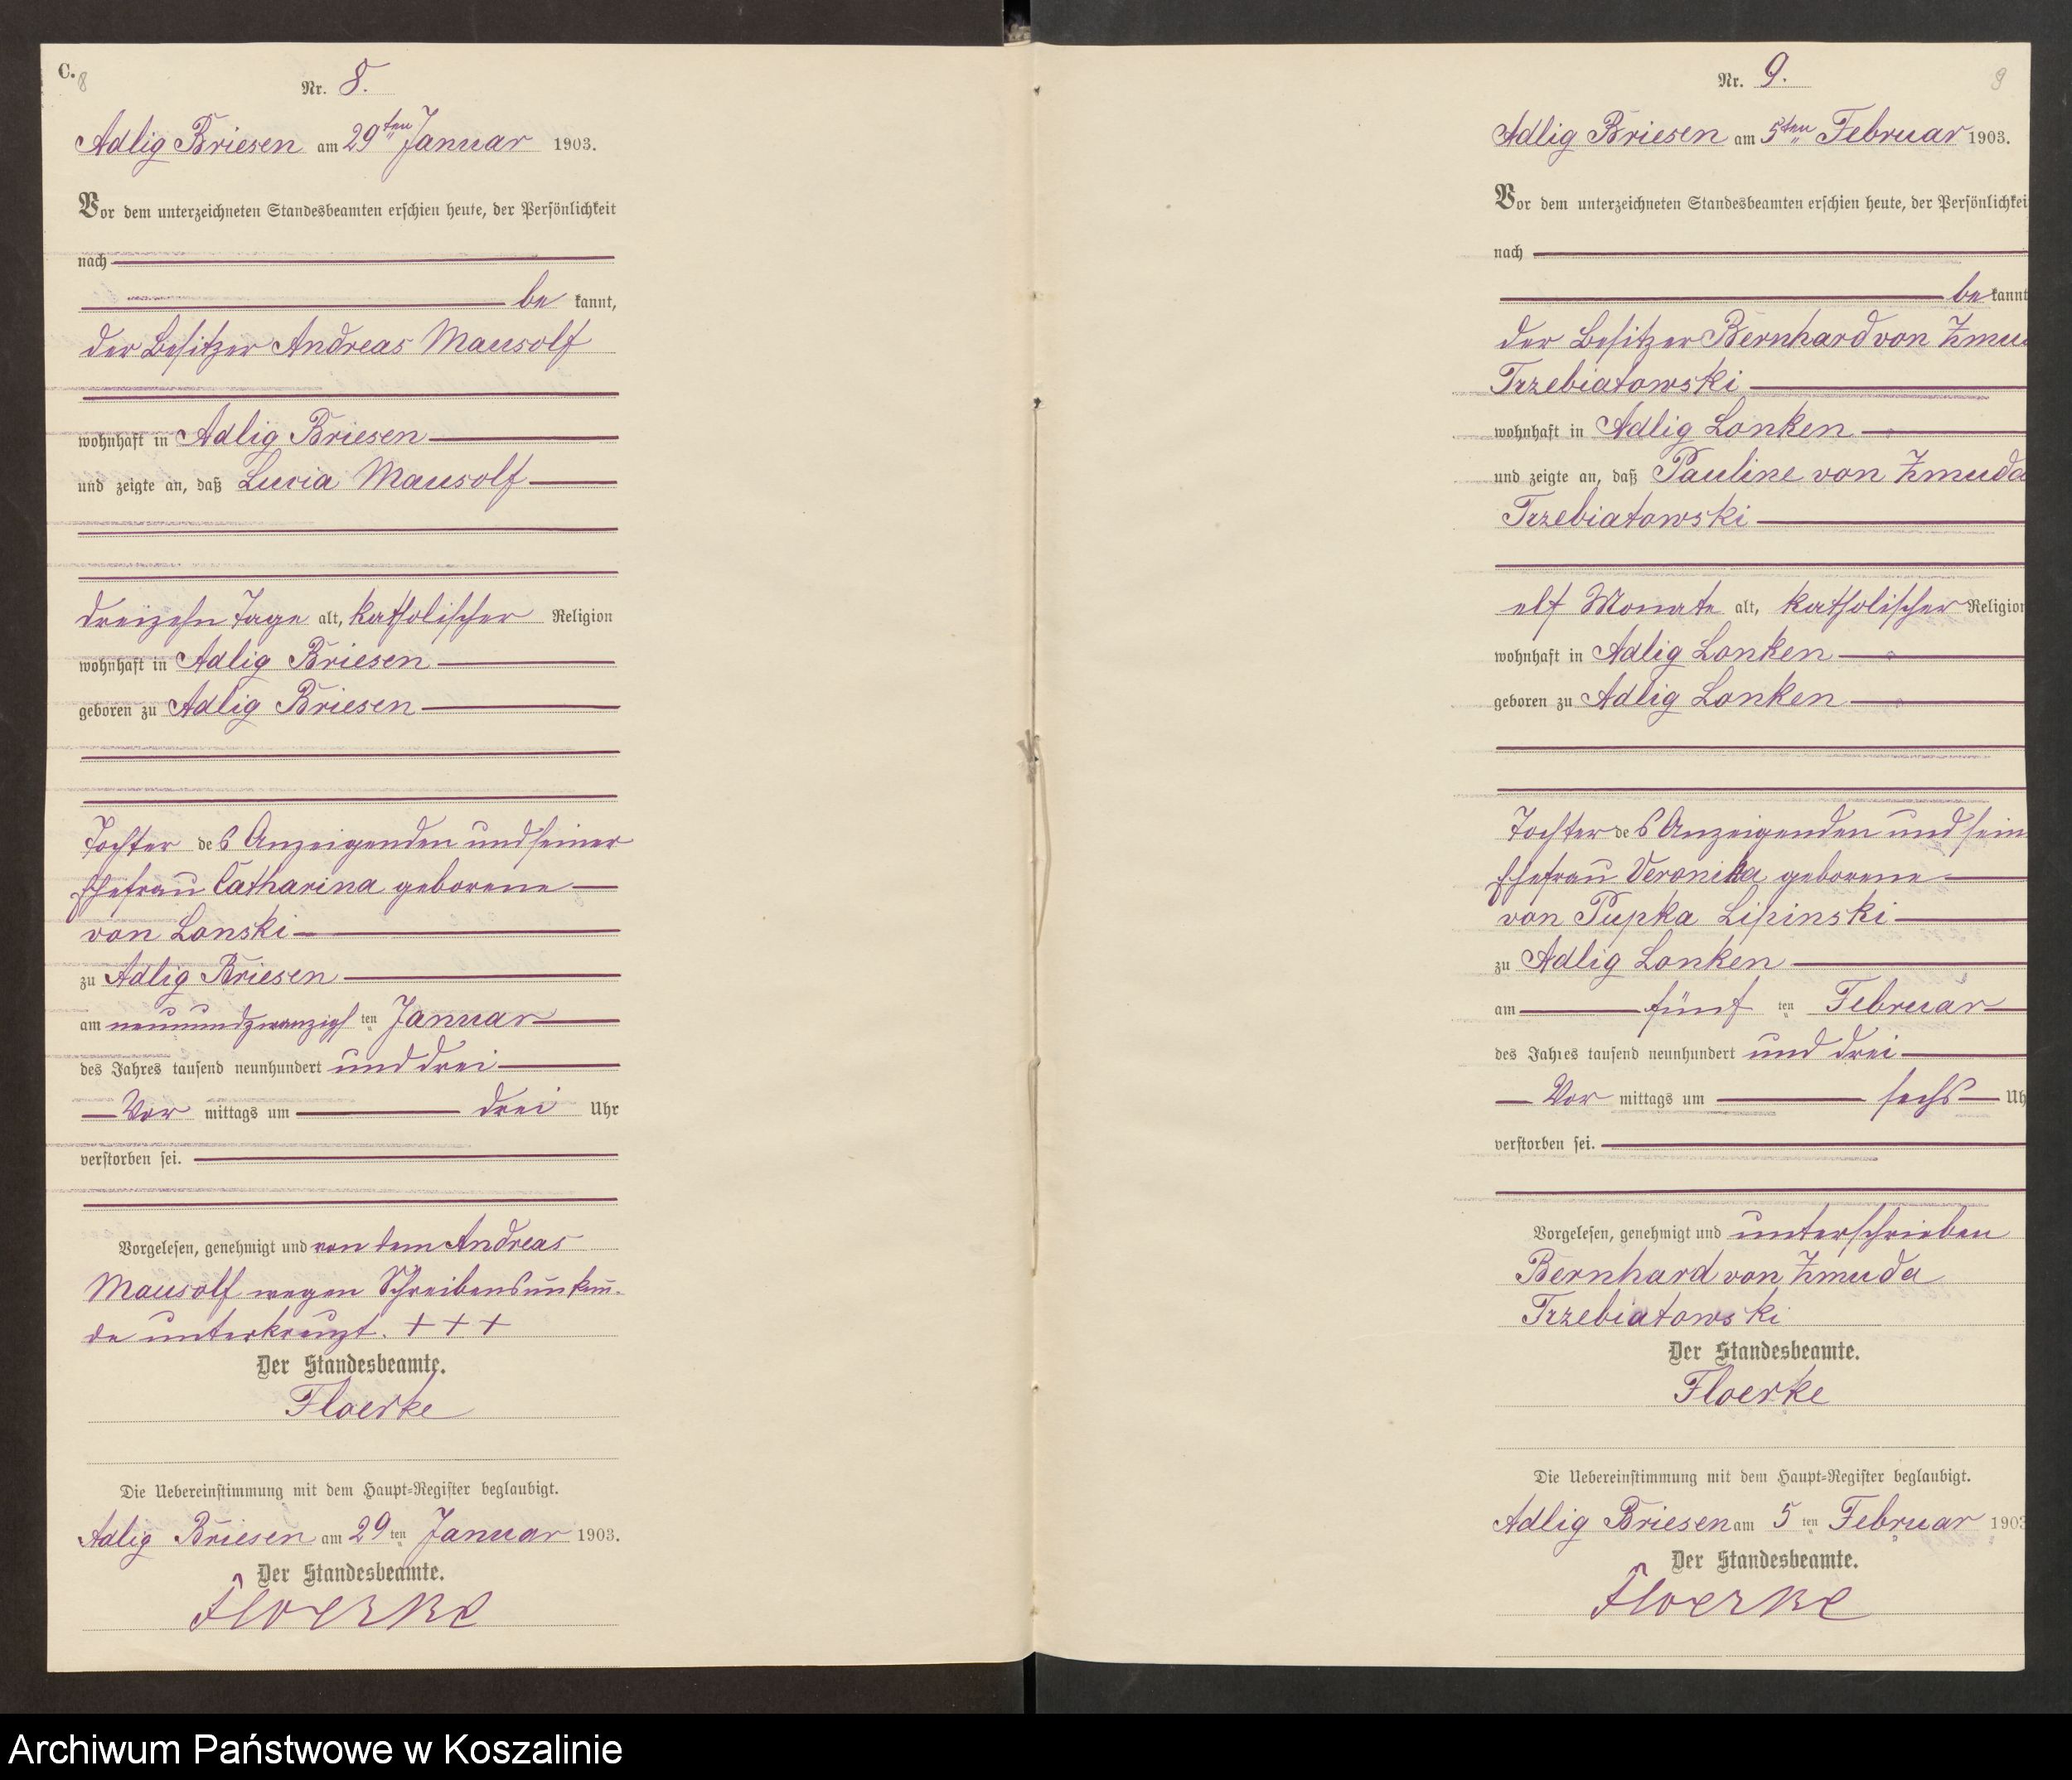 C.
8
Nr. 8.
Adlig Briesen am 29ten Januar 1903.
Vor dem unterzeichneten Standesbeamten erschien heute, der Persönlichkeit
nach
be kannt,
der Besitzer Andreas Mausolf
wohnhaft in Adlig Briesen
und zeigte an, daß Lucia Mausolf
dreizehn Tage alt, katholischer Religion
wohnhaft in Adlig Briesen
geboren zu Adlig Briesen
Tochter des Anzeigenden und seiner
Ehefrau Catharina geborene
von Lonski
zu Adlig Briesen
am neunundzwanzigsten Januar
des Jahres tausend neunhundert und drei
Vor mittags um drei Uhr
verstorben sei.
Vorgelesen, genehmigt und von dem Andreas
Mausolf wegen Schreibensunkun-
de unterkreuzt. + + +
Der Standesbeamte.
Floerke
Die Uebereinstimmung mit dem Haupt-Register beglaubigt.
Adlig Briesen am 29 ten Januar 1903.
Der Standesbeamte.
Floerke
Nr. 9.
9
Adlig Briesen am 5ten Februar 1903.
Vor dem unterzeichneten Standesbeamten erschien heute, der Persönlichkei
nach
be kannt
der Besitzer Bernhard von Zmu
Trzebiatowski
wohnhaft in Adlig Lonken
und zeigte an, daß Pauline von Zmuda
Trzebiatowski
elf Monate alt, katholischer Religion
wohnhaft in Adlig Lonken
geboren zu Adlig Lonken
Tochter des Anzeigenden und sein
Ehefrau Veronika geborene
von Pupka Lipinski
zu Adlig Lonken
am fünf ten Februar
des Jahres tausend neunhundert und drei
Vor mittags um sechs Uh
verstorben sei.
Vorgelesen, genehmigt und unterschrieben
Bernhard von Zmuda
Trzebiatowski
Der Standesbeamte.
Floerke
Die Uebereinstimmung mit dem Haupt-Register beglaubigt.
Adlig Briesen am 5 ten Februar 1903
Der Standesbeamte.
Floerke
Archiwum Państwowe w Koszalinie